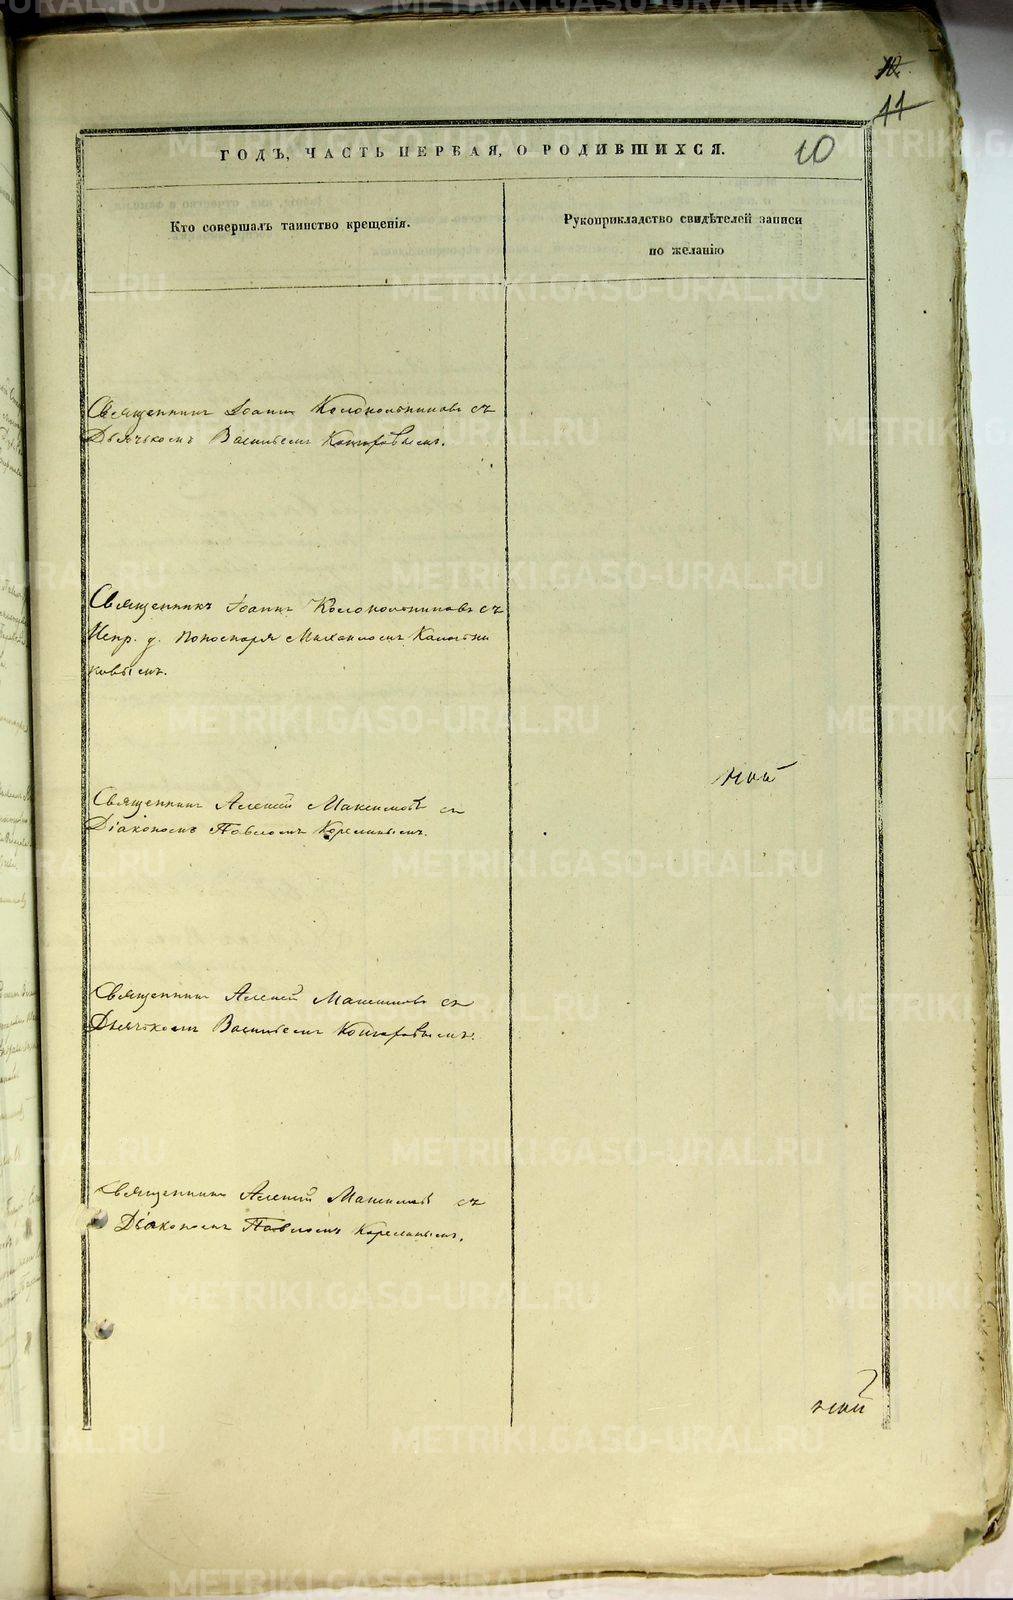 11
10
ГОДЪ, ЧАСТЬ ПЕРВАЯ, О РОДИВШИХСЯ.
Кто совершалъ таинство крещенія.
Рукоприкладство свидѣтелей записи
по желанію
Священникъ Іоаннъ Колокольниковъ съ
Дьячькомъ Васильемъ
Священникъ Іоаннъ Колокольниковъ съ
Испр. д. Пономаря Михаиломъ Калашни
ковымъ.
Священникъ Алексій Максимовъ съ
Діакономъ Павломъ Корелинымъ.
Священникъ Алексій Максимовъ съ
Дьячькомъ Васильемъ
Священникъ Алексій Максимовъ съ
Діакономъ Павломъ Корелинымъ.
METRIKI.GASO-URAL.RU